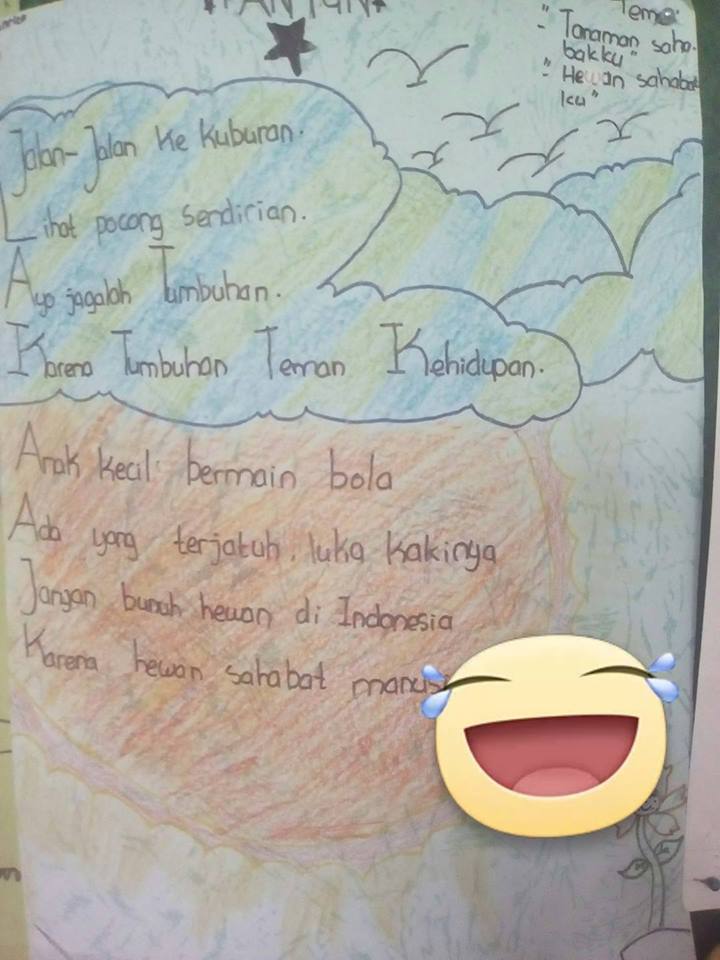 PANTUN
Tema:
- "Tanaman saha-
bakku"
- "Hewan sahabat
ku"
Jalan-Jalan Ke Kuburan.
Lihat pocong sendirian.
Ayo jagalah Tumbuhan.
Karena Tumbuhan Teman Kehidupan.
Anak kecil bermain bola
Ada yang terjatuh. luka kakinya
Jangan bunuh hewan di Indonesia
Karena hewan sahabat